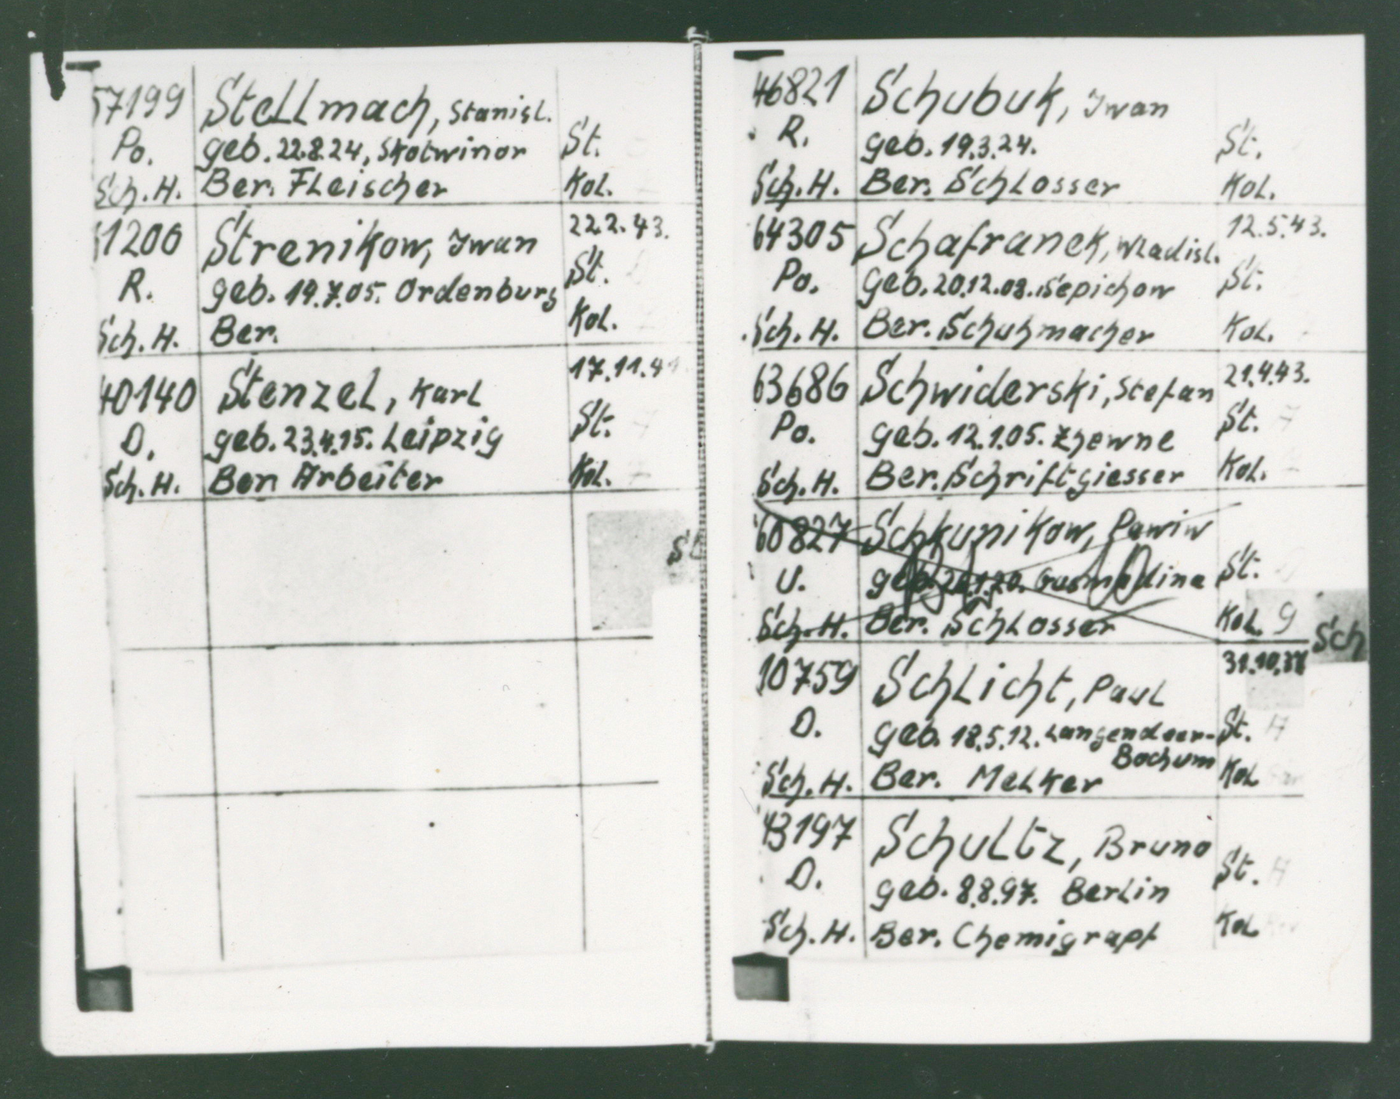 57199 Stellmach, Stanisl.
Po. geb. 22.8.24, Skotwinor St.
Sch. H. Ber. Fleischer Kol.
1200 Strenikow, Iwan 22.2.43.
R. geb. 19.7.05. Ordenburg St.
Sch. H. Ber. Kol.
40140 Stenzel, Karl 17.11.41
D. geb. 23.4.15. Leipzig St.
Sch. H. Ber. Arbeiter Kol.
St
46821 Schubuk, Iwan
R. geb. 19.3.24. St.
Sch. H. Ber. Schlosser Kol.
64305 Schafranek, Wladisl. 12.5.43.
Po. geb. 20.12.08. Sepichow St.
Sch. H. Ber. Schuhmacher Kol.
63686 Schwiderski, Stefan 21.4.43.
Po. geb. 12.1.05. Zyewne St.
Sch. H. Ber. Schriftgiesser Kol.
60827 Schkunikow, Pawiw
U. geb. St.
Sch. H. Ber. Schlosser Kol. 9
Sch
10759 Schlicht, Paul 31.10.38
D. geb. 18.5.12. Langendoer- St.
Bochum
Sch. H. Ber. Melker Kol
43197 Schultz, Bruno
D. geb. 8.8.97. Berlin St.
Sch. H. Ber. Chemigraph Kol